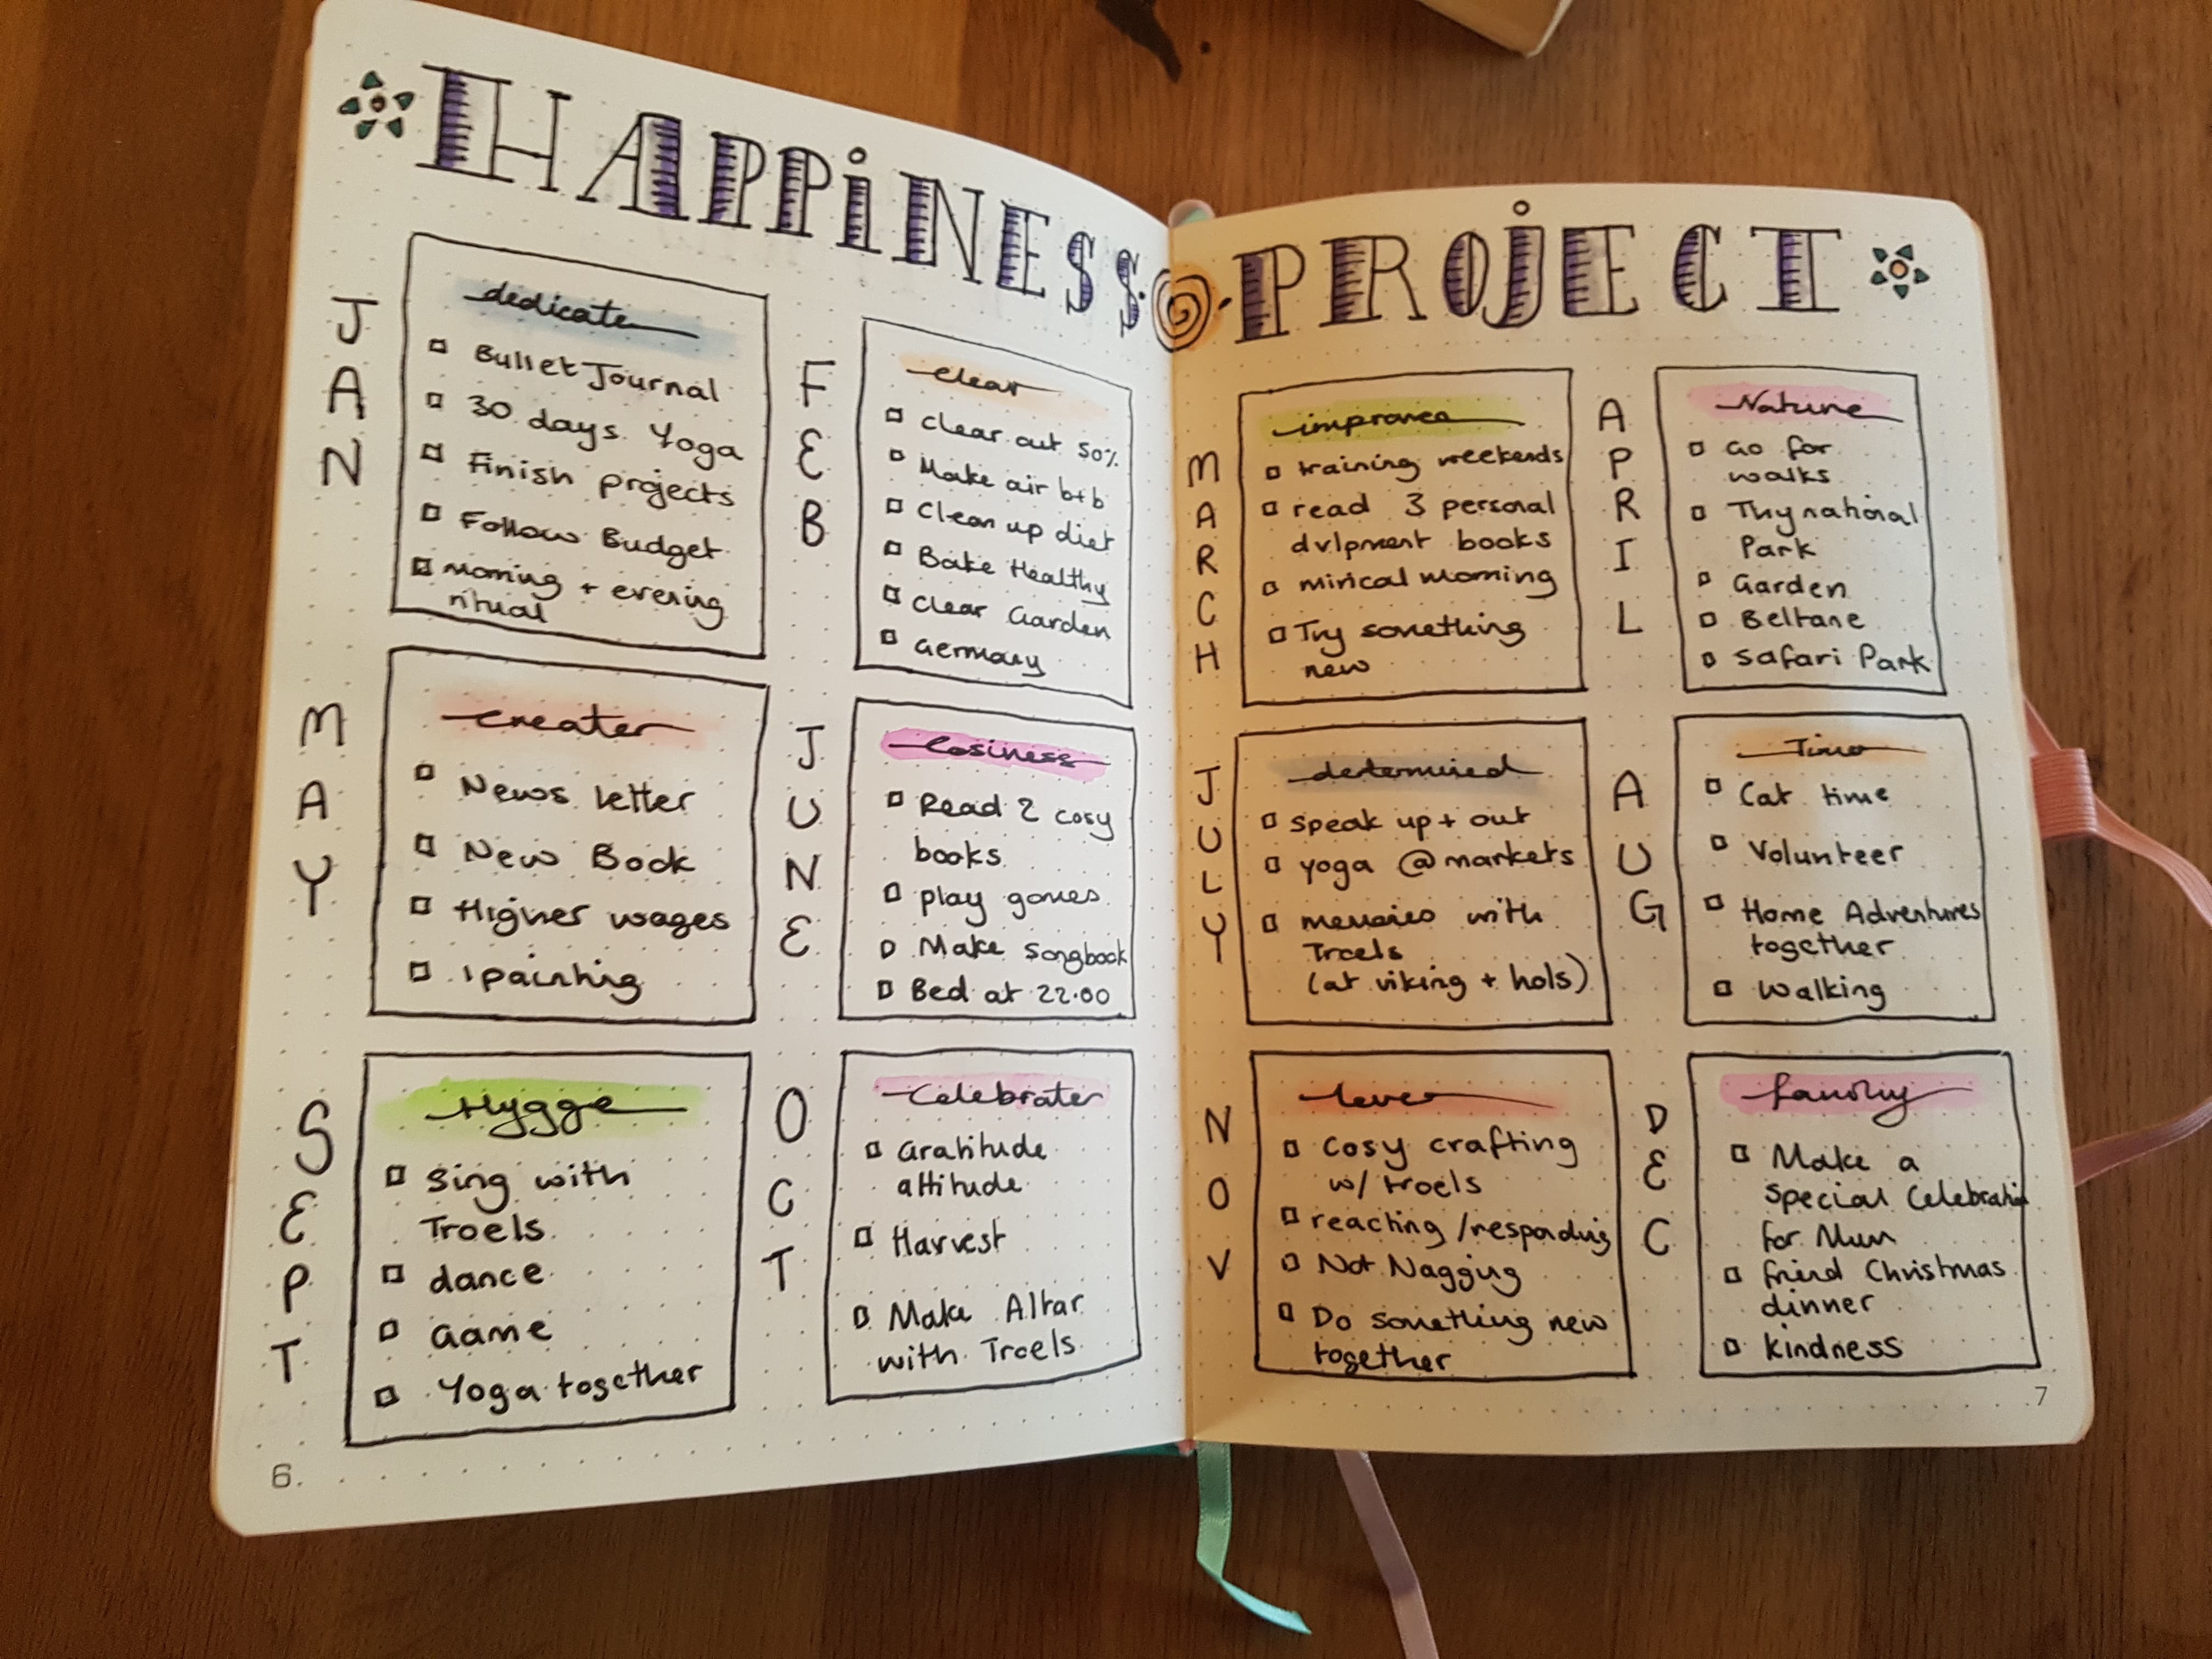 HAPPINESS PROJECT
JAN
dedicate
Bullet Journal
30 days Yoga
Finish projects
Follow Budget
Morning + evening
ritual
FEB
clear
clear out 50%
Make air b+b
Clean up diet
Bake Healthy
Clear Garden
Germany
MARCH
improve
training weekends
read 3 personal
dvlpment books
mirical morning
Try something
new
APRIL
Nature
Go for
walks
Thy national
Park
Garden
Beltane
Safari Park
MAY
create
News letter
New Book
Higher wages
1 painting
JUNE
Cosiness
Read 2 cosy
books
play games
Make Songbook
Bed at 22.00
JULY
determined
speak up + out
yoga @ markets
memories with
Troels
(at viking + hols)
AUG
Time
Cat time
Volunteer
Home Adventures
together
Walking
SEPT
Hygge
Sing with
Troels
dance
Game
Yoga together
OCT
Celebrate
Gratitude
attitude
Harvest
Make Altar
with Troels
NOV
love
Cosy crafting
w/ troels
reacting /responding
Not Nagging
Do something new
together
DEC
family
Make a
special Celebration
for Mum
friend Christmas
dinner
kindness
6
7